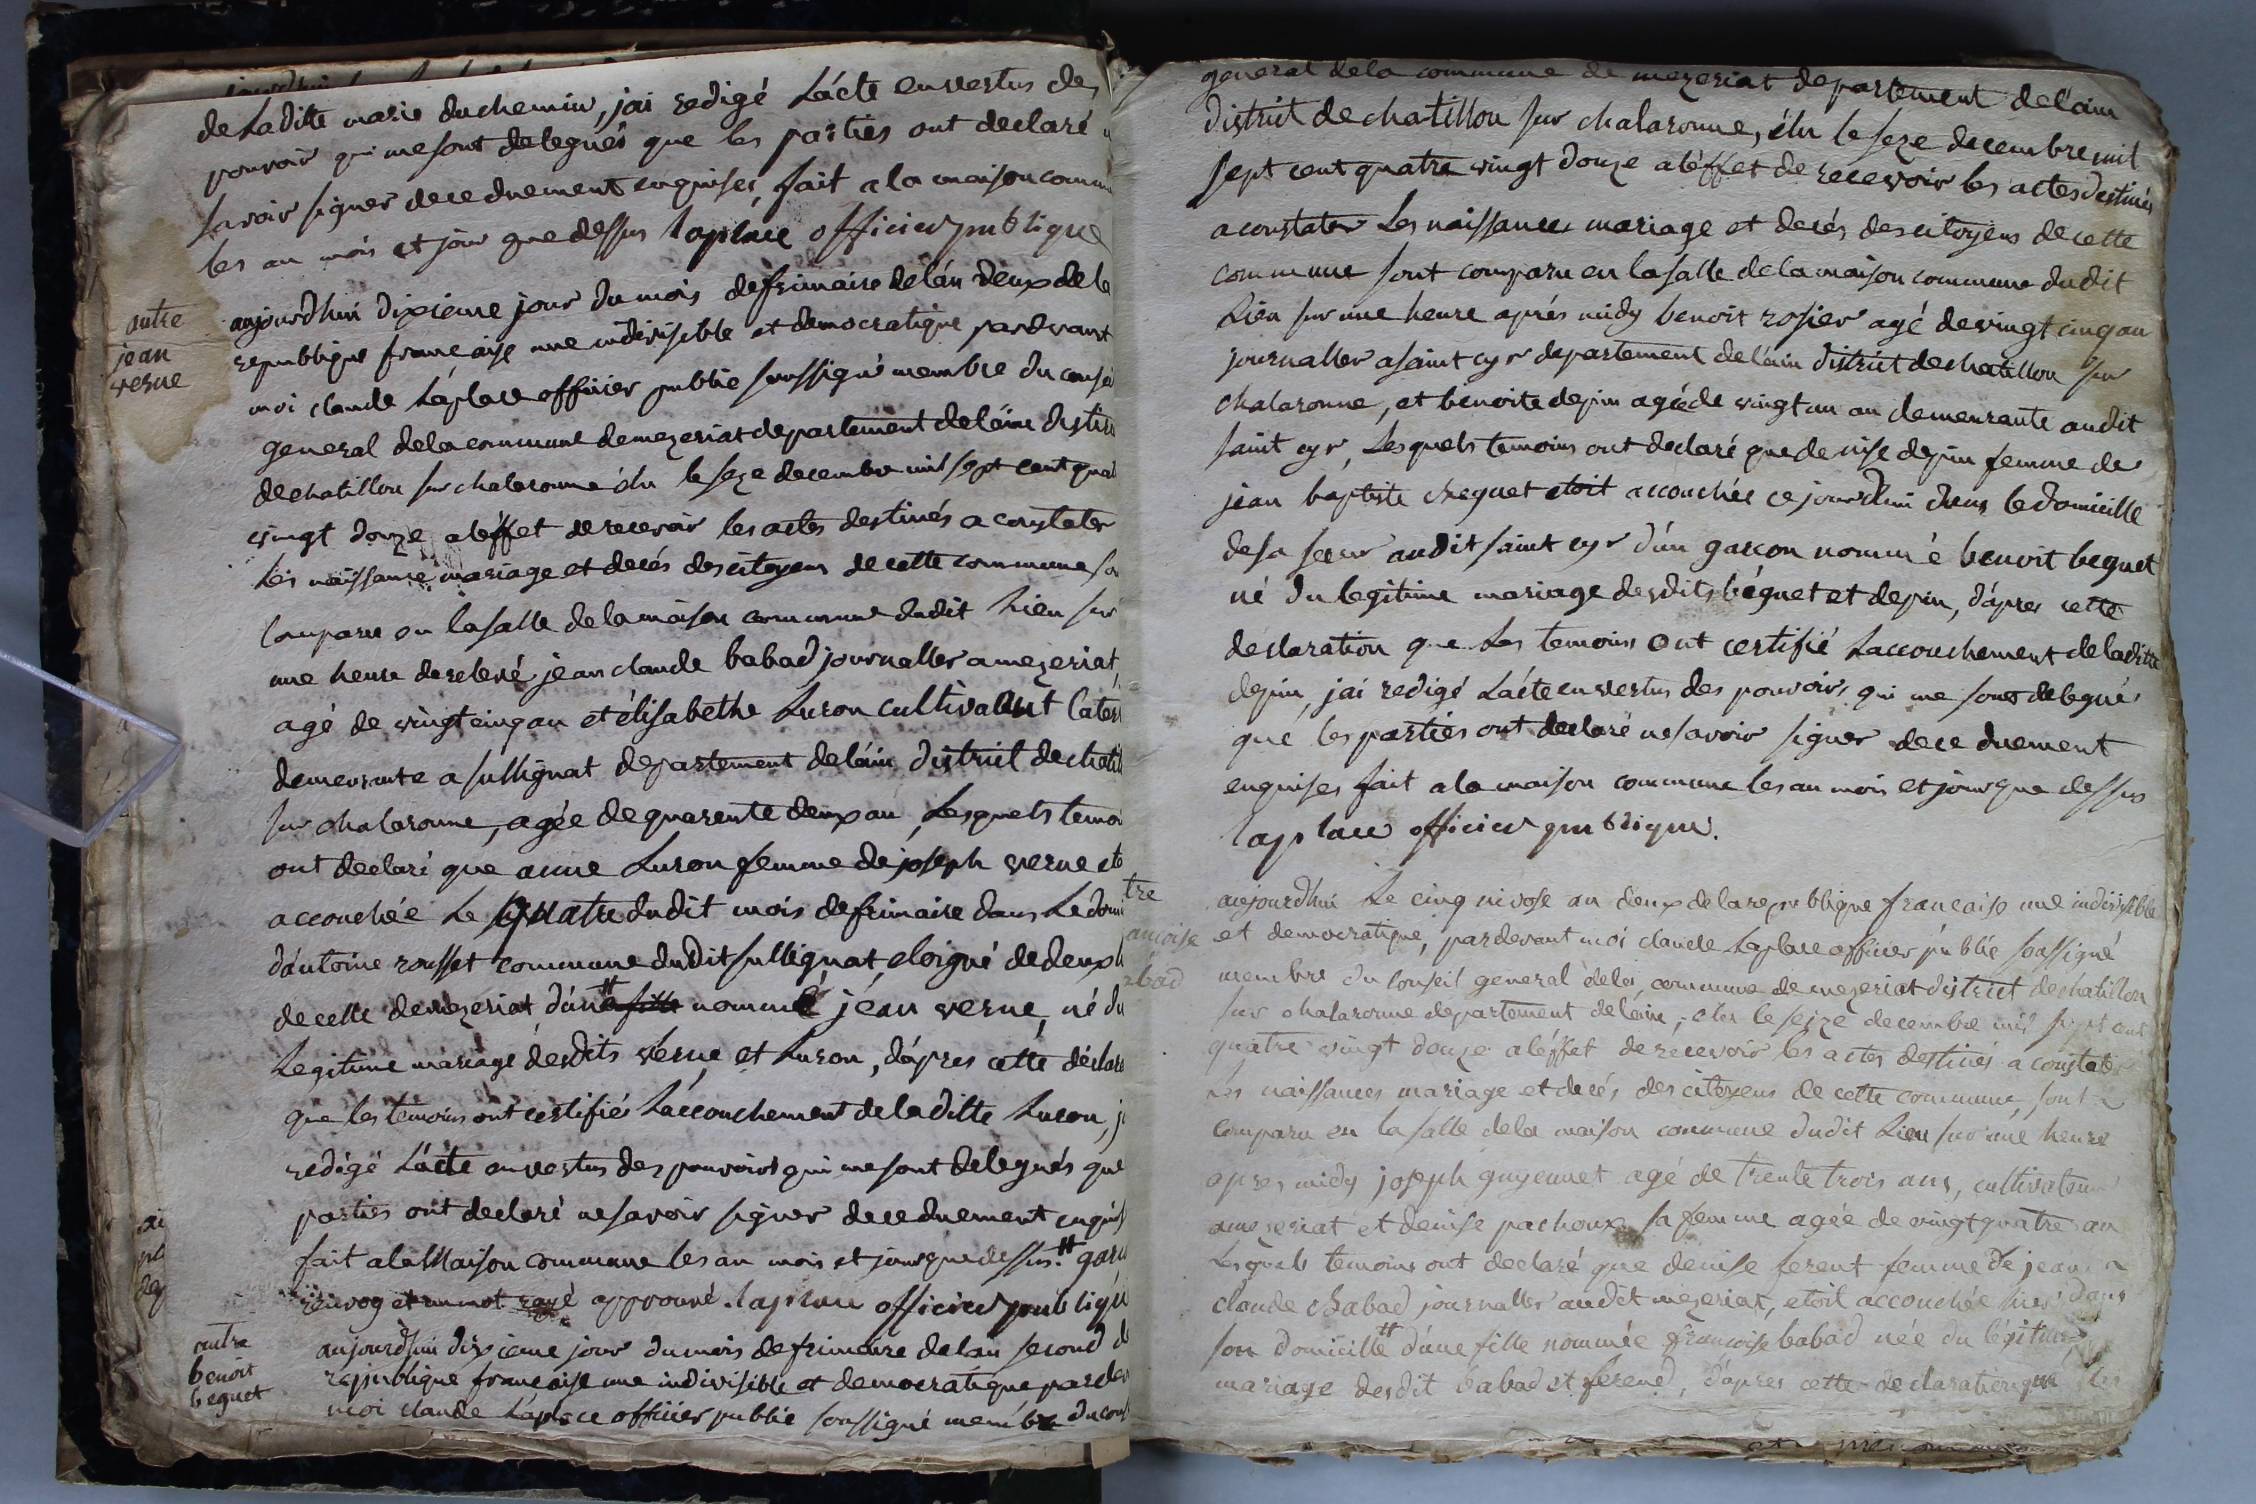 de Laditte marie duchemin, jai redigé Lácte en vertus des
pouvoir qui me sont delegués que les parties ont declaré
savoir signer de ce duement enquises, fait a la maison commu
les an mois et jour que dessus laplace officier publique
autre
jean
verne
aujourdhui dixieme jour du mois de frimaire de lán deux de la
republique francaise une indivisible et democratique pardevant
moi claude Láplace officier public soussigné membre du conseil
general de la commune de mezeriat departement de láin district
de chatillon sur chalaronne élu le seze decembre mil sept cent quat
vingt douze a léffet de recevoir les actes destinés a constater
les naissance mariage et decés des citoyens de cette commune so
comparu en la salle de la maison commune dudit Lieu sur
une heure de relevé jean claude babad journallier a mezeriat,
agé de vingt cinq an et élisabethe Luron cultivaant
demeurante a sullignat departement de láin district de chatil
sur chalaronne, agée de quarente deux an, Lesquels temoi
ont declaré que anne Luron femme de joseph verne eto
accouchée Le quatre dudit mois de frimaire dans Le domi
dántoine rousset commune dudit sullignat, eloigné de deux
de celle de mezeriat dún# nommé jéan verne, né du
Legitime mariage desdits verne et Luron, dápres cette déclara
que les temoins ont certifiés Láccouchement de laditte Luron, j
redigé Lácte en vertus des pouvoirs qui me sont delegués que
parties ont declaré ne savoir signer de ce duement enquis
fait a la Maison commune les an mois et jour que dessus # garc
renvoy et un mot rayé approuvé. laplace officier publiqu
autre
benoit
beguet
aujourdhui dixieme jour du mois de frimaire de lan second d
republique francaise une indivisible et democratique pardev
moi claude Láplace officier public soussigné membre du cons
general de la commune de mezeriat departement de láin
district de chatillon sur chalaronne, élu le seze decembre mil
sept cent quatre vingt douze a léffet de recevoir les actes destinés
a constater Les naissance mariage et decés des citoyens de cette
commune sont comparu en la salle de la maison commune dudit
Lieu sur une heure aprés midy benoit rosier agé de vingt cinq an
journallier a saint cyr departement de láin district de chatillon sur
chalaronne, et benoite depin agée de vingt un an demeurante audit
saint cyr, Lesquels temoins ont declaré que denise depin femme de
jean baptiste beguet etoit accouchée ce jourdhui dans le domicille
de sa seour audit saint cyr dún garcon nommé benoit beguet
né du legitime mariage desdits béguet et depin, dápres cette
declaration que Les temoins ont certifié Laccouchement de laditte
depin, jai redigé Lácte en vertus des pouvoirs qui me sont delegués
que les parties ont declaré ne savoir signer de ce duement
enquises fait a la maison commune les an mois et jour que dessus
laplace officier publique.
tre
ancoise
abad
aujourdhui Le cinq nivose an deux de la republique francaise une indivisible
et democratique, pardevant moi claude Laplace officier public soussigné
membre du conseil general de la commune de mezeriat district de chatillon
sur chalaronne departement de láin, elu le seize decembre mil sept cent
quatre vingt douze a léffet de recevoir les actes destinés a constater
Les naissances mariage et decés des citoyens de cette commune, sont
comparu en la salle de la maison commune dudit Lieu sur une heure
apres midy joseph guyennet agé de trente trois ans, cultivateur
a mezeriat et denise pachoux sa femme agée de vingt quatre an
Lesquels temoins ont declaré que denise ferent femme de jean
claude babad journallier audit mezeriat, etoit accouchée hier dans
son domicille # dúne fille nommée francoise babad née du légitime
mariage desdit babad et ferend, dápres cette declaration que Les